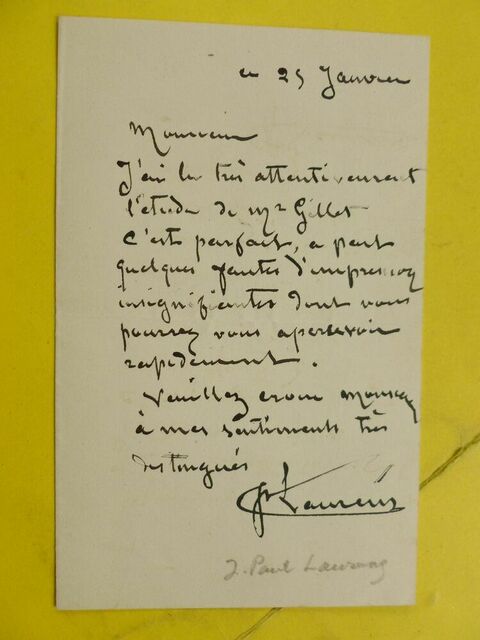 ce 25 Janvier
Monsieur
J'ai lu très attentivement
l'etude de Mr Gillet
C'est parfait, a part
quelques fautes d'impression
insignifiantes dont vous
pourrez vous apercevoir
rapidement.
Veuillez croire monsieur
à mes sentiments très
distingués
JP Laurens
J. Paul Laurens